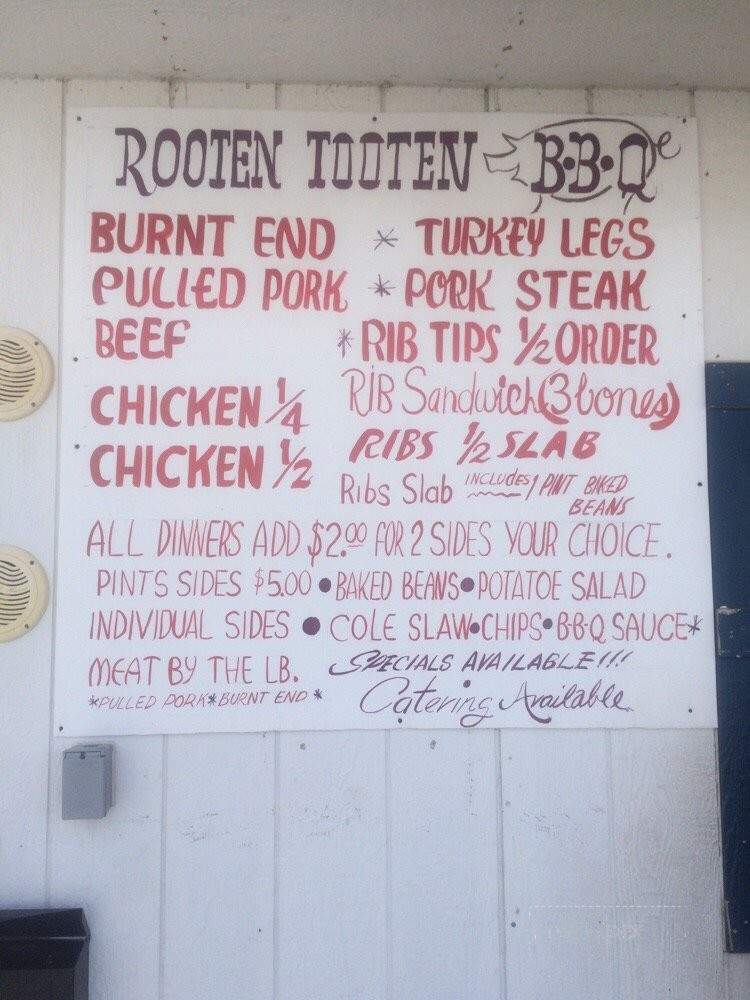 ROOTEN TOOTEN B·B·Q
BURNT END * TURKEY LEGS
PULLED PORK * PORK STEAK
BEEF * RIB TIPS 1/2 ORDER
CHICKEN 1/4 RIB Sandwich (3 bones)
CHICKEN 1/2 RIBS 1/2 SLAB
Ribs Slab INCLUDES 1 PINT BIKED BEANS
ALL DINNERS ADD $2.00 FOR 2 SIDES YOUR CHOICE.
PINTS SIDES $5.00 • BAKED BEANS • POTATOE SALAD
INDIVIDUAL SIDES • COLE SLAW • CHIPS • B·B·Q SAUCE *
MEAT BY THE LB. SPECIALS AVAILABLE!!!
*PULLED PORK * BURNT END * Catering Available